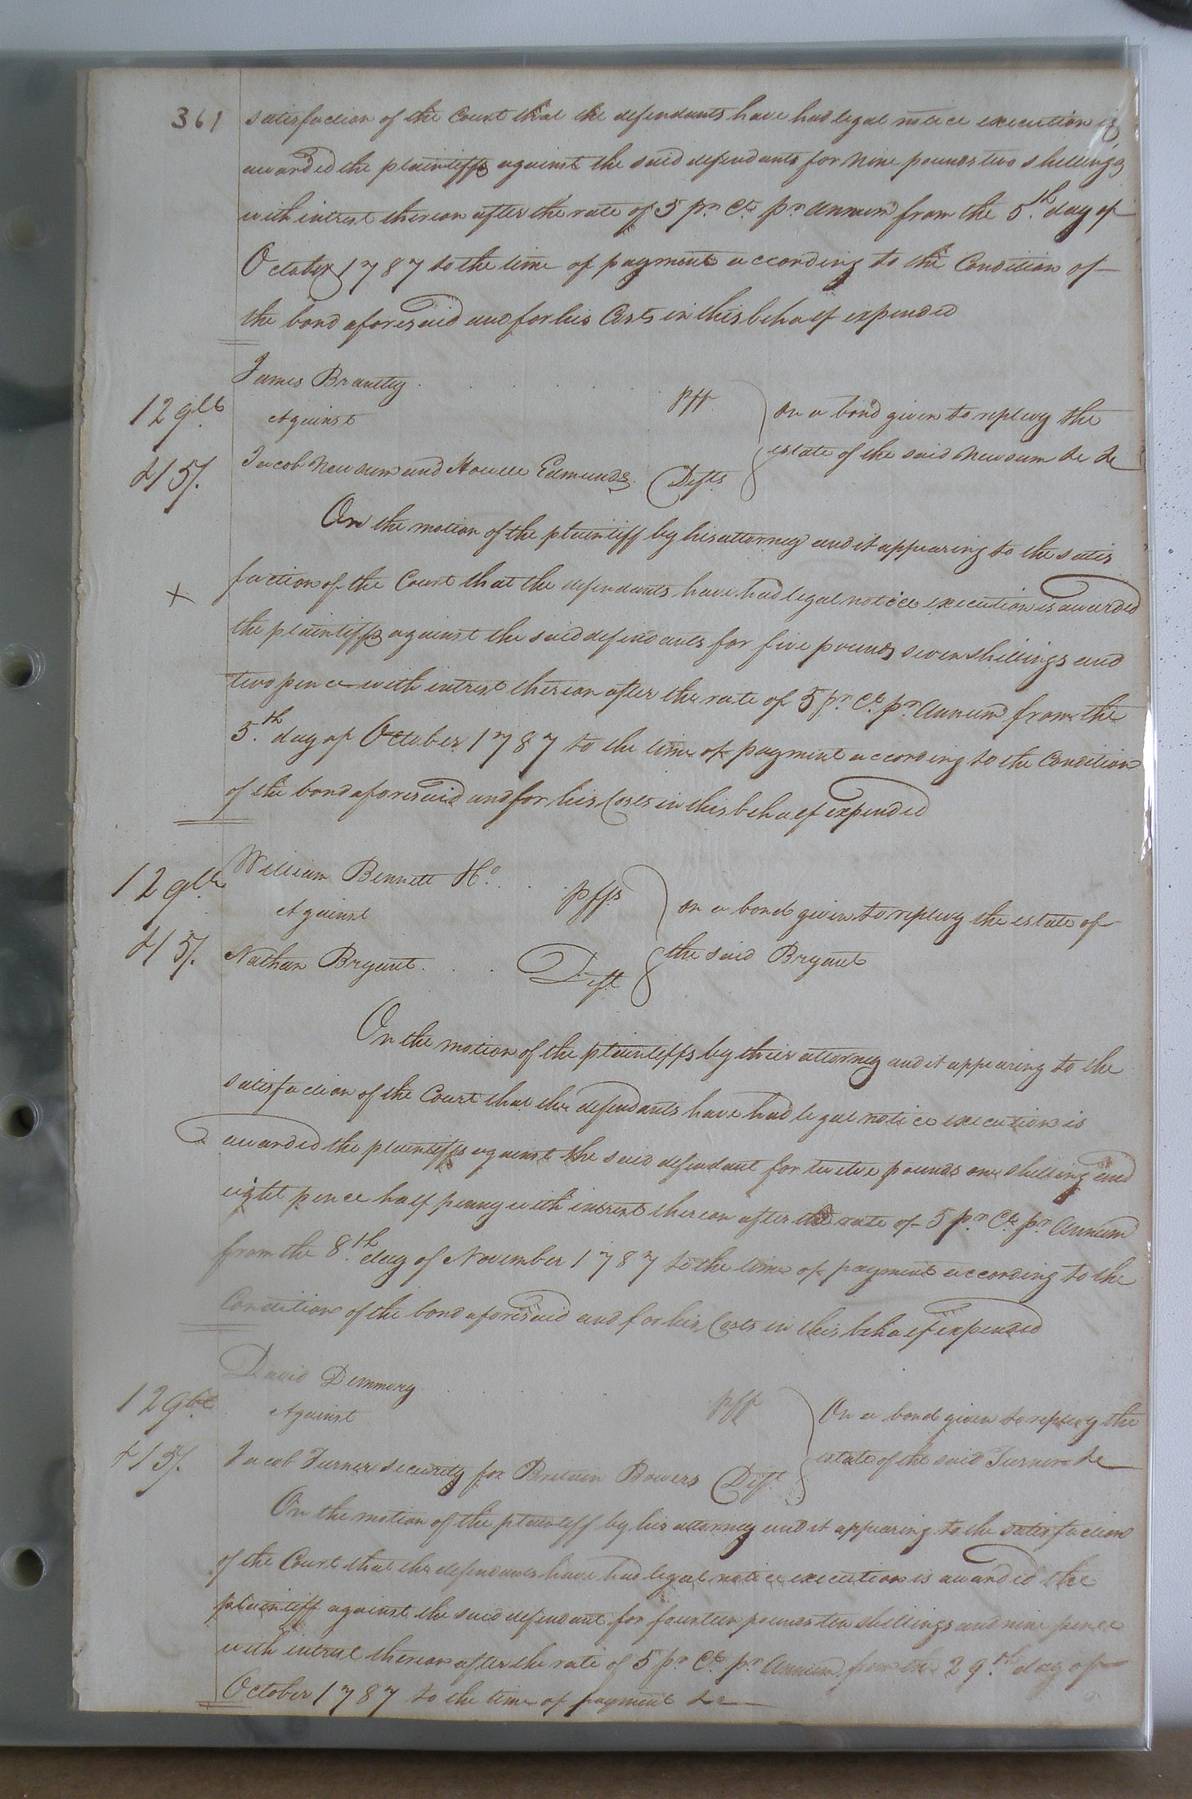 361 satisfaction of the Court that the defendants have had legal notice execution is
awarded the plaintiffs against the said defendants for nine pounds two shillings
with intrest thereon after the rate of 5 pr. Ct. pr. Annum from the 5.th day of
October 1787 to the time of payment according to the Condition of
the bond aforesaid and for his Costs in this behalf expended
James Brantley Plff
12 on a bond given to replevy the
Against
estate of the said Newsum &c &c
Jacob Newsum and Howell Edmunds Defts
15/.
On the motion of the plaintiff by his attorney and it appearing to the satis
x faction of the Court that the defendants have had legal notice execution is awarded
the plaintiffs against the said defendants for five pounds seven shillings and
two pence with intrest thereon after the rate of 5 pr. Ct. pr. Annum from the
5.th day of October 1787 to the time of payment according to the Condition
of the bond aforesaid and for his Costs in this behalf expended
William Bennett & Co. Plffs
12 on a bond given to replevy the estate of
Against
the said Bryant
Nathan Bryant Deft
15/.
On the motion of the plaintiffs by their attorney and it appearing to the
satisfaction of the Court that the defendants have had legal notice execution is
awarded the plaintiffs against the said defendant for twelve pounds one shilling and
eight pence half penny with intrest thereon after the rate of 5 pr. Ct. pr. Annum
from the 8.th day of November 1787 to the time of payment according to the
Condition of the bond aforesaid and for his Costs in this behalf expended
David Demmory Plff
12 On a bond given to replevy the
Against
estate of the said Turner &c
Jacob Turner security for Britain Bowers Deft
15/.
On the motion of the plaintiff by his attorney and it appearing to the satisfaction
of the Court that the defendants have had legal notice execution is awarded the
plaintiff against the said defendant for fourteen pounds ten shillings and nine pence
with intrest thereon after the rate of 5 pr. Ct. pr. Annum from the 29.th day of
October 1787 to the time of payment &c